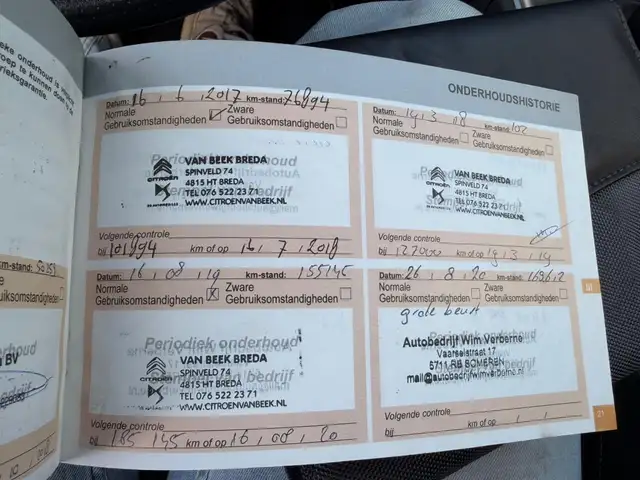 ONDERHOUDSHISTORIE
Datum: 16 , 6 , 2017 km-stand: 76894
Normale Gebruiksomstandigheden
Zware Gebruiksomstandigheden
Periodiek onderhoud
VAN BEEK BREDA
SPINVELD 74
4815 HT BREDA
TEL 076 522 23 71
WWW.CITROENVANBEEK.NL
CITROËN
DS
Volgende controle
bij 101894 km of op 16 , 7 , 2018
Datum: 19 , 3 , 08 km-stand: 102
Normale Gebruiksomstandigheden
Zware Gebruiksomstandigheden
Periodiek onderhoud
VAN BEEK BREDA
SPINVELD 74
4815 HT BREDA
TEL 076 522 23 71
WWW.CITROENVANBEEK.NL
CITROËN
DS
Volgende controle
bij 127000 km of op 19 , 3 , 19
Datum: 16 , 08 , 19 km-stand: 155145
Normale Gebruiksomstandigheden X
Zware Gebruiksomstandigheden
Periodiek onderhoud
VAN BEEK BREDA
SPINVELD 74
4815 HT BREDA
TEL 076 522 23 71
WWW.CITROENVANBEEK.NL
CITROËN
DS
Volgende controle
bij 185 145 km of op 16 , 08 , 20
Datum: 26 , 8 , 20 km-stand: 169612
Normale Gebruiksomstandigheden
Zware Gebruiksomstandigheden
grote beurt
Autobedrijf Wim Verberne
Vaarselstraat 17
5711 RB SOMEREN
mail@autobedrijfwimverberne.nl
Volgende controle
bij km of op , ,
III
21